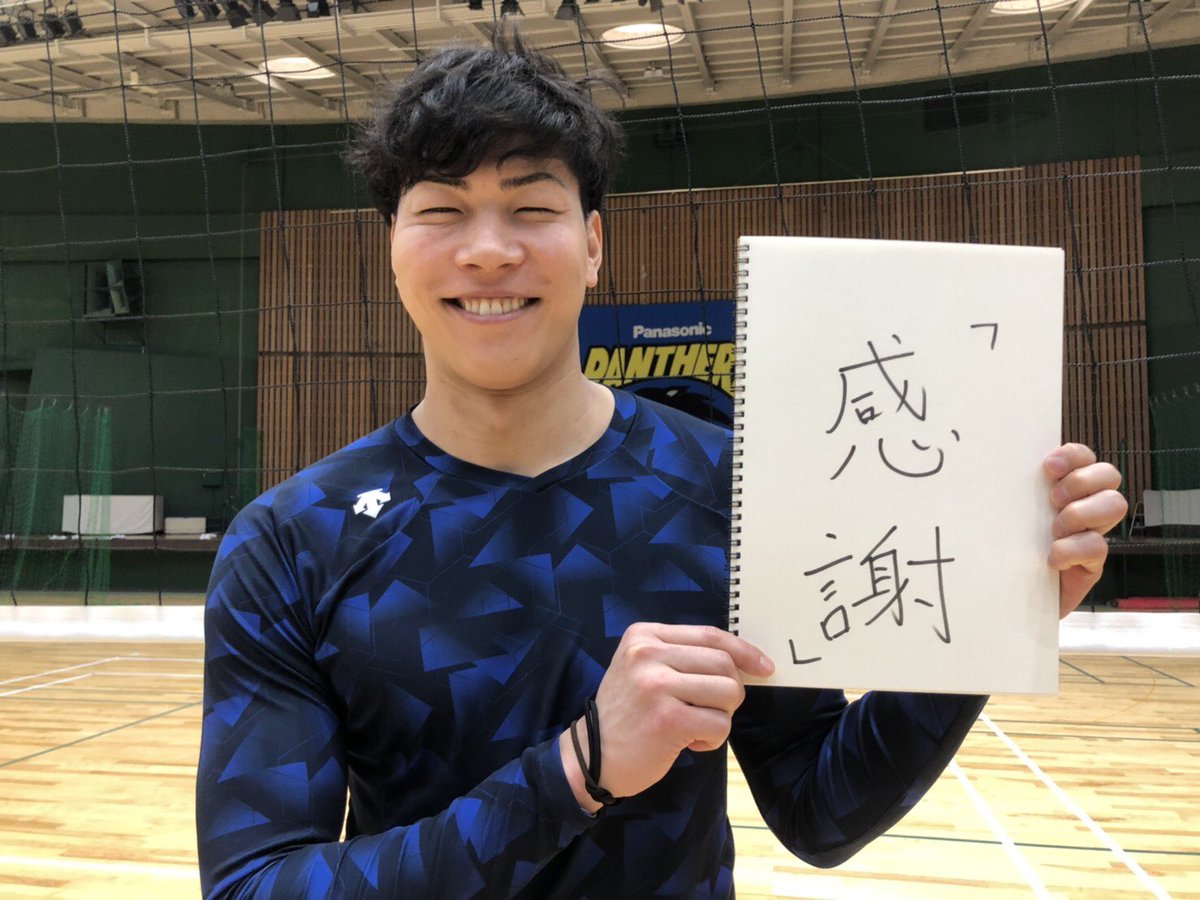 Panasonic
PANTHER
「感謝」